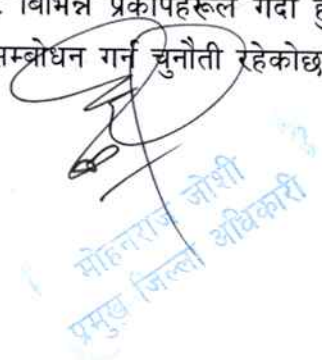 विभिन्न प्रकोपहरूले गर्दा
सम्बोधन गर्न चुनौती रहेकोछ
मोहनराज जोशी
प्रमुख जिल्ला अधिकारी